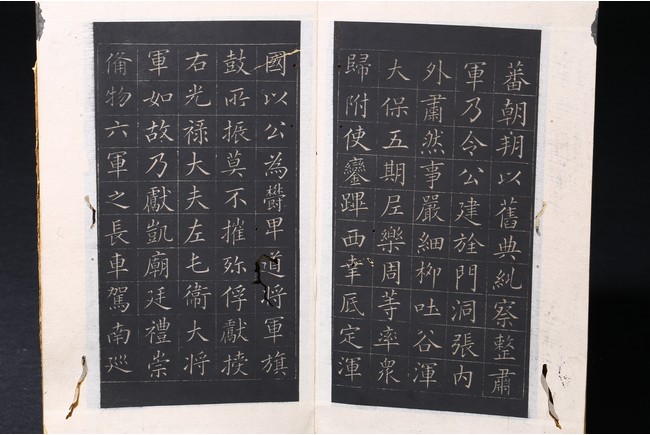 蕃朝翔以舊典糺察整肅
軍乃令公建旌門洞張内
外肅然事嚴細柳吐谷渾
大保五期尼樂周等率衆
歸附使鑾蹕西幸底定渾
國以公為欝甲道將軍旗
鼓所振莫不摧殄俘獻捷
右光祿大夫左屯衛大將
軍如故乃獻凱廟廷禮崇
俻物六軍之長車駕南巡